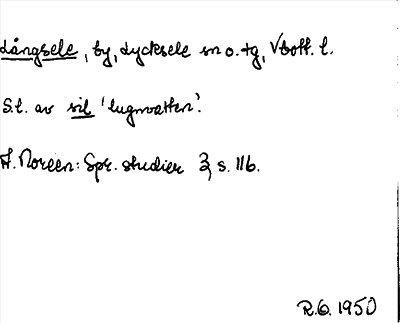 Långsele, by, Lycksele sn o. tg, Vboff. l.
S.l. av sil 'lugnvatten'.
A. Noreen: Spr. studier 3, s. 116.
R.G. 1950